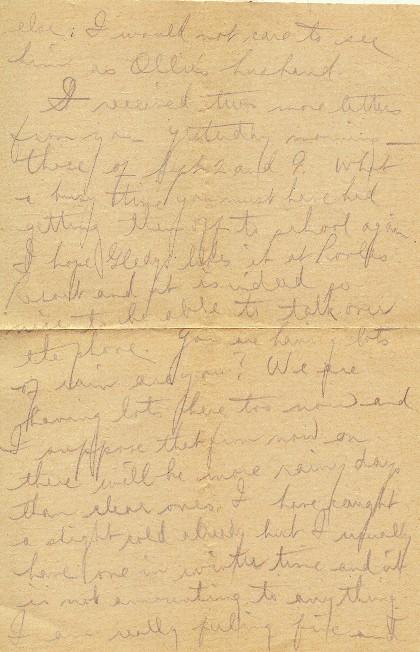 else; I would not care to see
him as Ollie's husband.
I received two more letters
from you yesterday morning—
those of Sept 2 and 9. What
a busy thing you must have had
getting them off to school again.
I hope Gladys likes it at
and it is indeed so
nice to be able to talk over
the phone. You are having lots
of rain are you? We are
having lots here too now and
I suppose that from now on
there will be more rainy days
than clear ones. I have caught
a slight cold already but I usually
have one in winter time and it
is not amounting to anything.
I am really feeling fine and